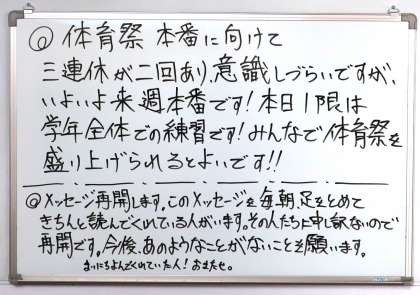 ◎ 体育祭 本番に向けて
三連休が二回あり、意識しづらいですが、
いよいよ来週本番です!本日1限は
学年全体での練習です!みんなで体育祭を
盛り上げられるとよいです!!
◎メッセージ再開します。このメッセージを毎朝、足をとめて
きちんと読んでくれている人がいます。その人たちに申し訳ないので
再開です。今後、あのようなことがないことを願います。
まいにちよんでくれていた人!おまたせ。